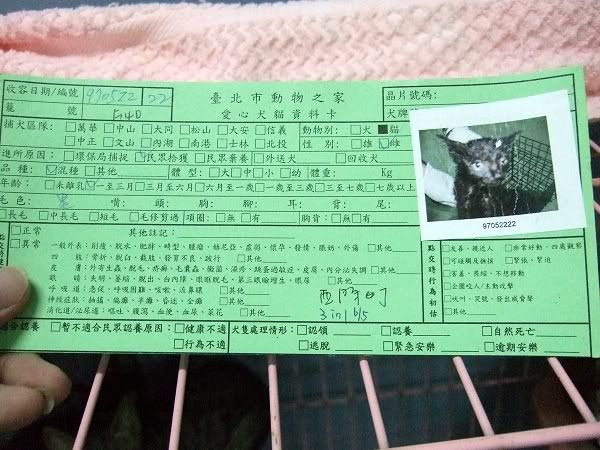 收容日期/編號 970522 22 臺北市動物之家 晶片號碼:
籠號 F40 愛心犬貓資料卡 犬牌號
捕犬區隊: □萬華 □中山 □大同 □松山 □大安 □信義 動物別: □犬 ■貓
□中正 □文山 □內湖 □南港 □士林 □北投 性別: □雄 ☑雌
進所原因: □環保外捕捉 ☑民眾拾獲 □民眾棄養 □外送犬 □回收犬
品種: ☑混種 □其他 體型: □大 □中 □小 □幼 體重: Kg
年齡: □未離乳 ☑一至三月 □三月至六月 □六月至一歲 □一歲至三歲 □三至七歲 □七歲以上
毛色: 嘴: 頭: 胸: 腳: 耳: 背: 尾:
□長毛 □中長毛 □短毛 □毛修剪過 項圈: □無 □有 胸背: □無 □有
97052222
□正常 其他註記:
□異常 一般外表: 削瘦、脫水、肥胖、畸型、腫瘤、赫尼亞、虛弱、懷孕、發情、眼奶、外傷 □其他
四肢: 骨折、脫臼、截肢、發育不良、跛行 □其他
皮膚: 外寄生蟲、脫毛、疥癬、毛囊蟲、黴菌、濕疹、跳蚤過敏症、皮屑、內分泌失調 □其他
眼睛: 失明、萎縮、脫出、白內障、眼瞼脫毛、第三眼瞼增生、眼屎 □其他
呼吸道: 急促、呼吸困難、咳嗽、流鼻膿 □其他
神經症狀: 抽搐、癲癇、半癱、昏迷、全癱 □其他
消化道/泌尿道: 嘔吐、腹瀉、血便、血尿、菜花 □其他
3 in 1 6/5
點交時行為初估
□友善、親近人 □非常好動、四處觀察
□可碰觸及撫摸 □緊張、緊迫
□害羞、畏縮、不想移動
□企圖咬人/主動攻擊
□吠叫、哭號、發出威脅聲
□其他
適合認養 □暫不適合民眾認養原因: □健康不適 犬隻處理情形: □認領 □認養 □自然死亡
□行為不適 □逃脫 □緊急安樂 □逾期安樂